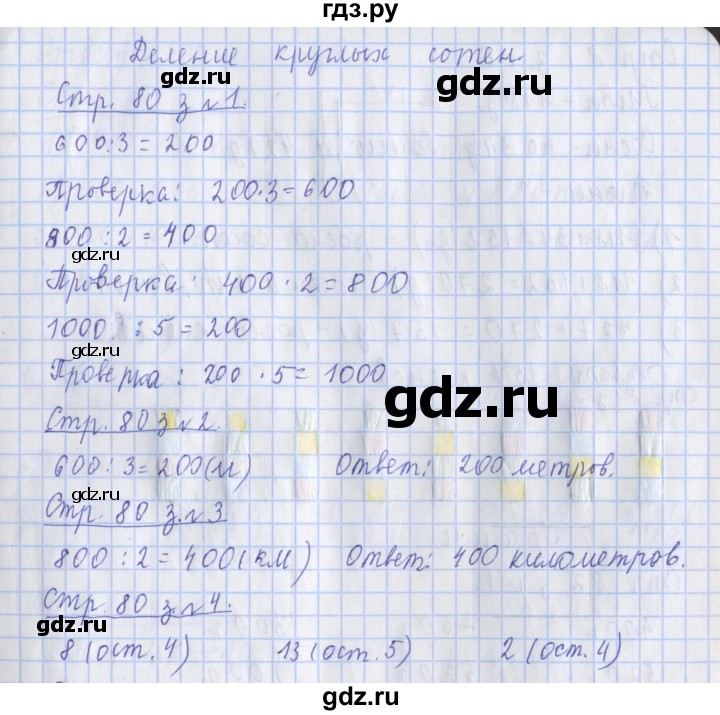 гдз.ру
Деление круглых сотен
gdz.ru
Стр. 80 з. №1.
gdz.ru
600:3 = 200
Проверка: 200·3=600
gdz.ru
800 : 2 = 400
gdz.ru
Проверка: 400 · 2 = 800
gdz.ru
1000 : 5 = 200
gdz.ru
Проверка: 200 · 5 = 1000
gdz.ru
Стр. 80 з №2.
gdz.ru
600 : 3 = 200(м) Ответ: 200 метров.
gdz.ru
Стр. 80 з. №3
gdz.ru
800 : 2 = 400(км) Ответ: 400 километров.
gdz.ru
Стр. 80 з. №4.
gdz.ru
8 (ост. 4) 13 (ост. 5) 2 (ост. 4)
gdz.ru